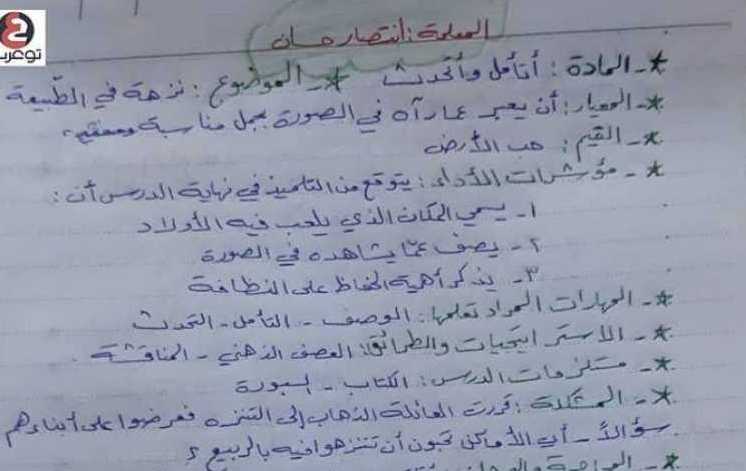 توعرب
المعلمة: انتصار حسان
*- المادة: أتأمل وأتحدث *- الموضوع: نزهة في الطبيعة
*- المعيار: أن يعبر عما رآه في الصورة بجمل مناسبة
*- القيم: حب الأرض
*- مؤشرات الأداء: يتوقع من التلميذ في نهاية الدرس أن:
١- يسمي المكان الذي يلعب فيه الأولاد
٢- يصف عمّا يشاهده في الصورة
٣- يذكر أهمية الحفاظ على النظافة
*- المهارات المراد تعلمها: الوصف - التأمل - التحدث
*- الاستراتيجيات والطرائق: العصف الذهني - المناقشة
*- مستلزمات الدرس: الكتاب - السبورة
*- المشكلة: قررت العائلة الذهاب إلى التنزه فعرضوا على أبناءهم
سؤالاً - أي الأماكن تحبون أن تتنزهوا فيه بالربيع؟